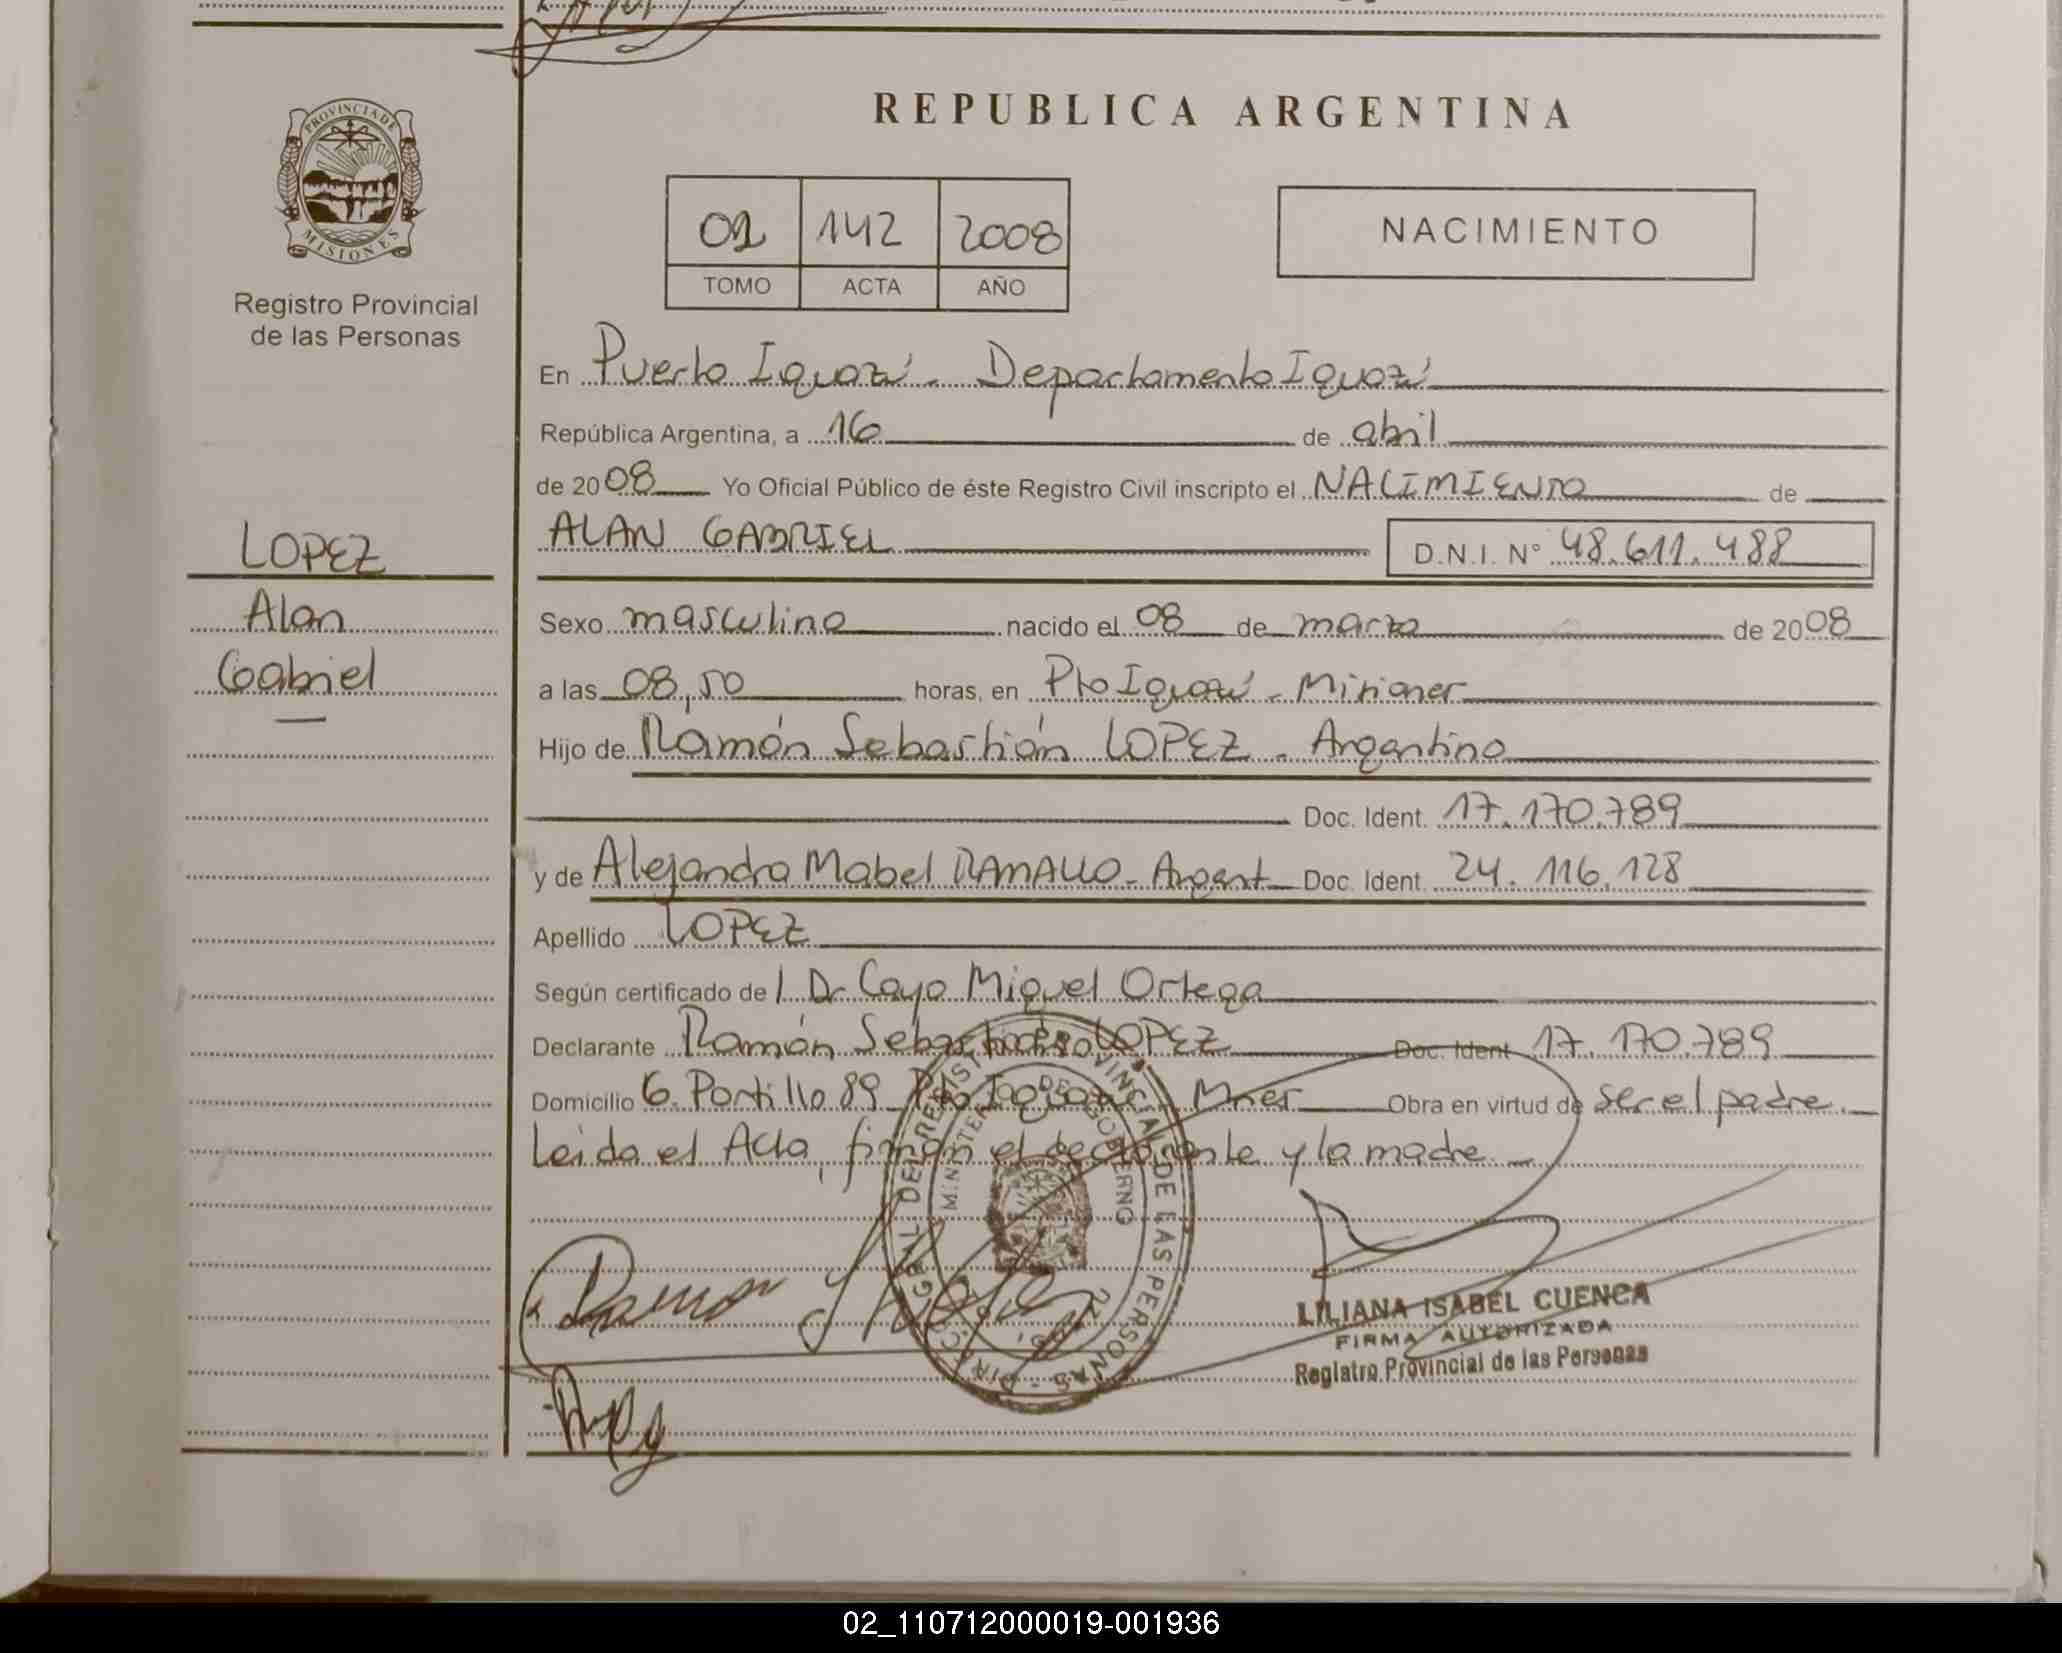 PROVINCIA DE
MISIONES
Registro Provincial
de las Personas
REPUBLICA ARGENTINA
02 142 2008
TOMO ACTA AÑO
NACIMIENTO
En Puerto Iguazú - Departamento Iguazú
República Argentina, a 16 de abril
de 2008 Yo Oficial Público de éste Registro Civil inscripto el NACIMIENTO de
ALAN GABRIEL D.N.I. N° 48.611.488
LOPEZ
Alan
Gabriel
Sexo masculino nacido el 08 de marzo de 2008
a las 08,50 horas, en Pto Iguazú - Misiones
Hijo de Ramón Sebastián LOPEZ - Argentino
Doc. Ident. 17.170.789
y de Alejandra Mabel RAMALLO - Argent Doc. Ident. 24.116.128
Apellido LOPEZ
Según certificado de Dr Cayo Miguel Ortega
Declarante Ramón Sebastián LOPEZ Doc. Ident 17.170.789
Domicilio G. Portillo 89 Pto Iguazú Mnes Obra en virtud de ser el padre.
Leida el Acta, firman el declarante y la madre -
MINISTERIO DE GOBIERNO
Ramon
LILIANA ISABEL CUENCA
FIRMA AUTORIZADA
Registro Provincial de las Personas
02_110712000019-001936